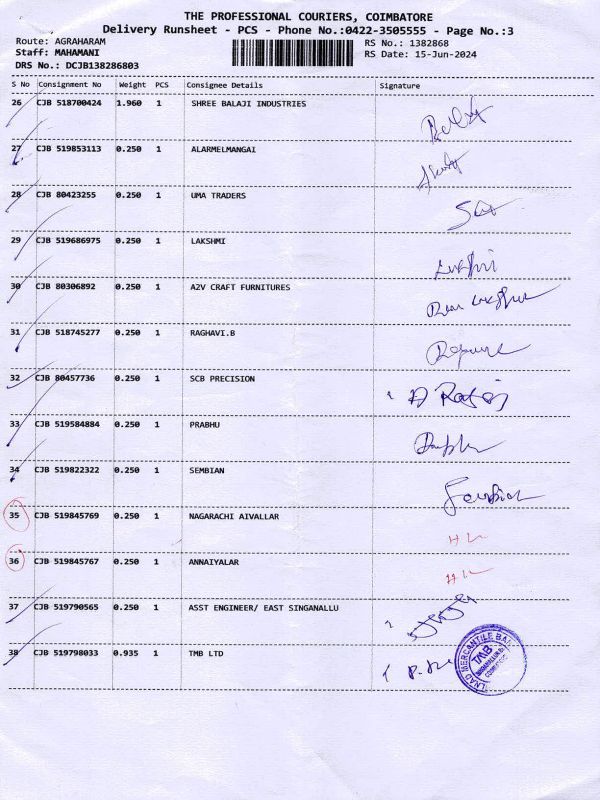 THE PROFESSIONAL COURIERS, COIMBATORE
Delivery Runsheet - PCS - Phone No.:0422-3505555 - Page No.:3
Route: AGRAHARAM
RS No.: 1382868
Staff: MAHAMANI
RS Date: 15-Jun-2024
DRS No.: DCJB138286803
S No Consignment No Weight PCS Consignee Details Signature
26 CJB 518700424 1.960 1 SHREE BALAJI INDUSTRIES
27 CJB 519853113 0.250 1 ALARMELMANGAI
28 CJB 80423255 0.250 1 UMA TRADERS
29 CJB 519686975 0.250 1 LAKSHMI
30 CJB 80306892 0.250 1 A2V CRAFT FURNITURES
31 CJB 518745277 0.250 1 RAGHAVI.B
32 CJB 80457736 0.250 1 SCB PRECISION
33 CJB 519584884 0.250 1 PRABHU
34 CJB 519822322 0.250 1 SEMBIAN
35 CJB 519845769 0.250 1 NAGARACHI AIVALLAR
36 CJB 519845767 0.250 1 ANNAIYALAR
37 CJB 519790565 0.250 1 ASST ENGINEER/ EAST SINGANALLU
38 CJB 519798033 0.935 1 TMB LTD
MERCANTILE BAN
TMB